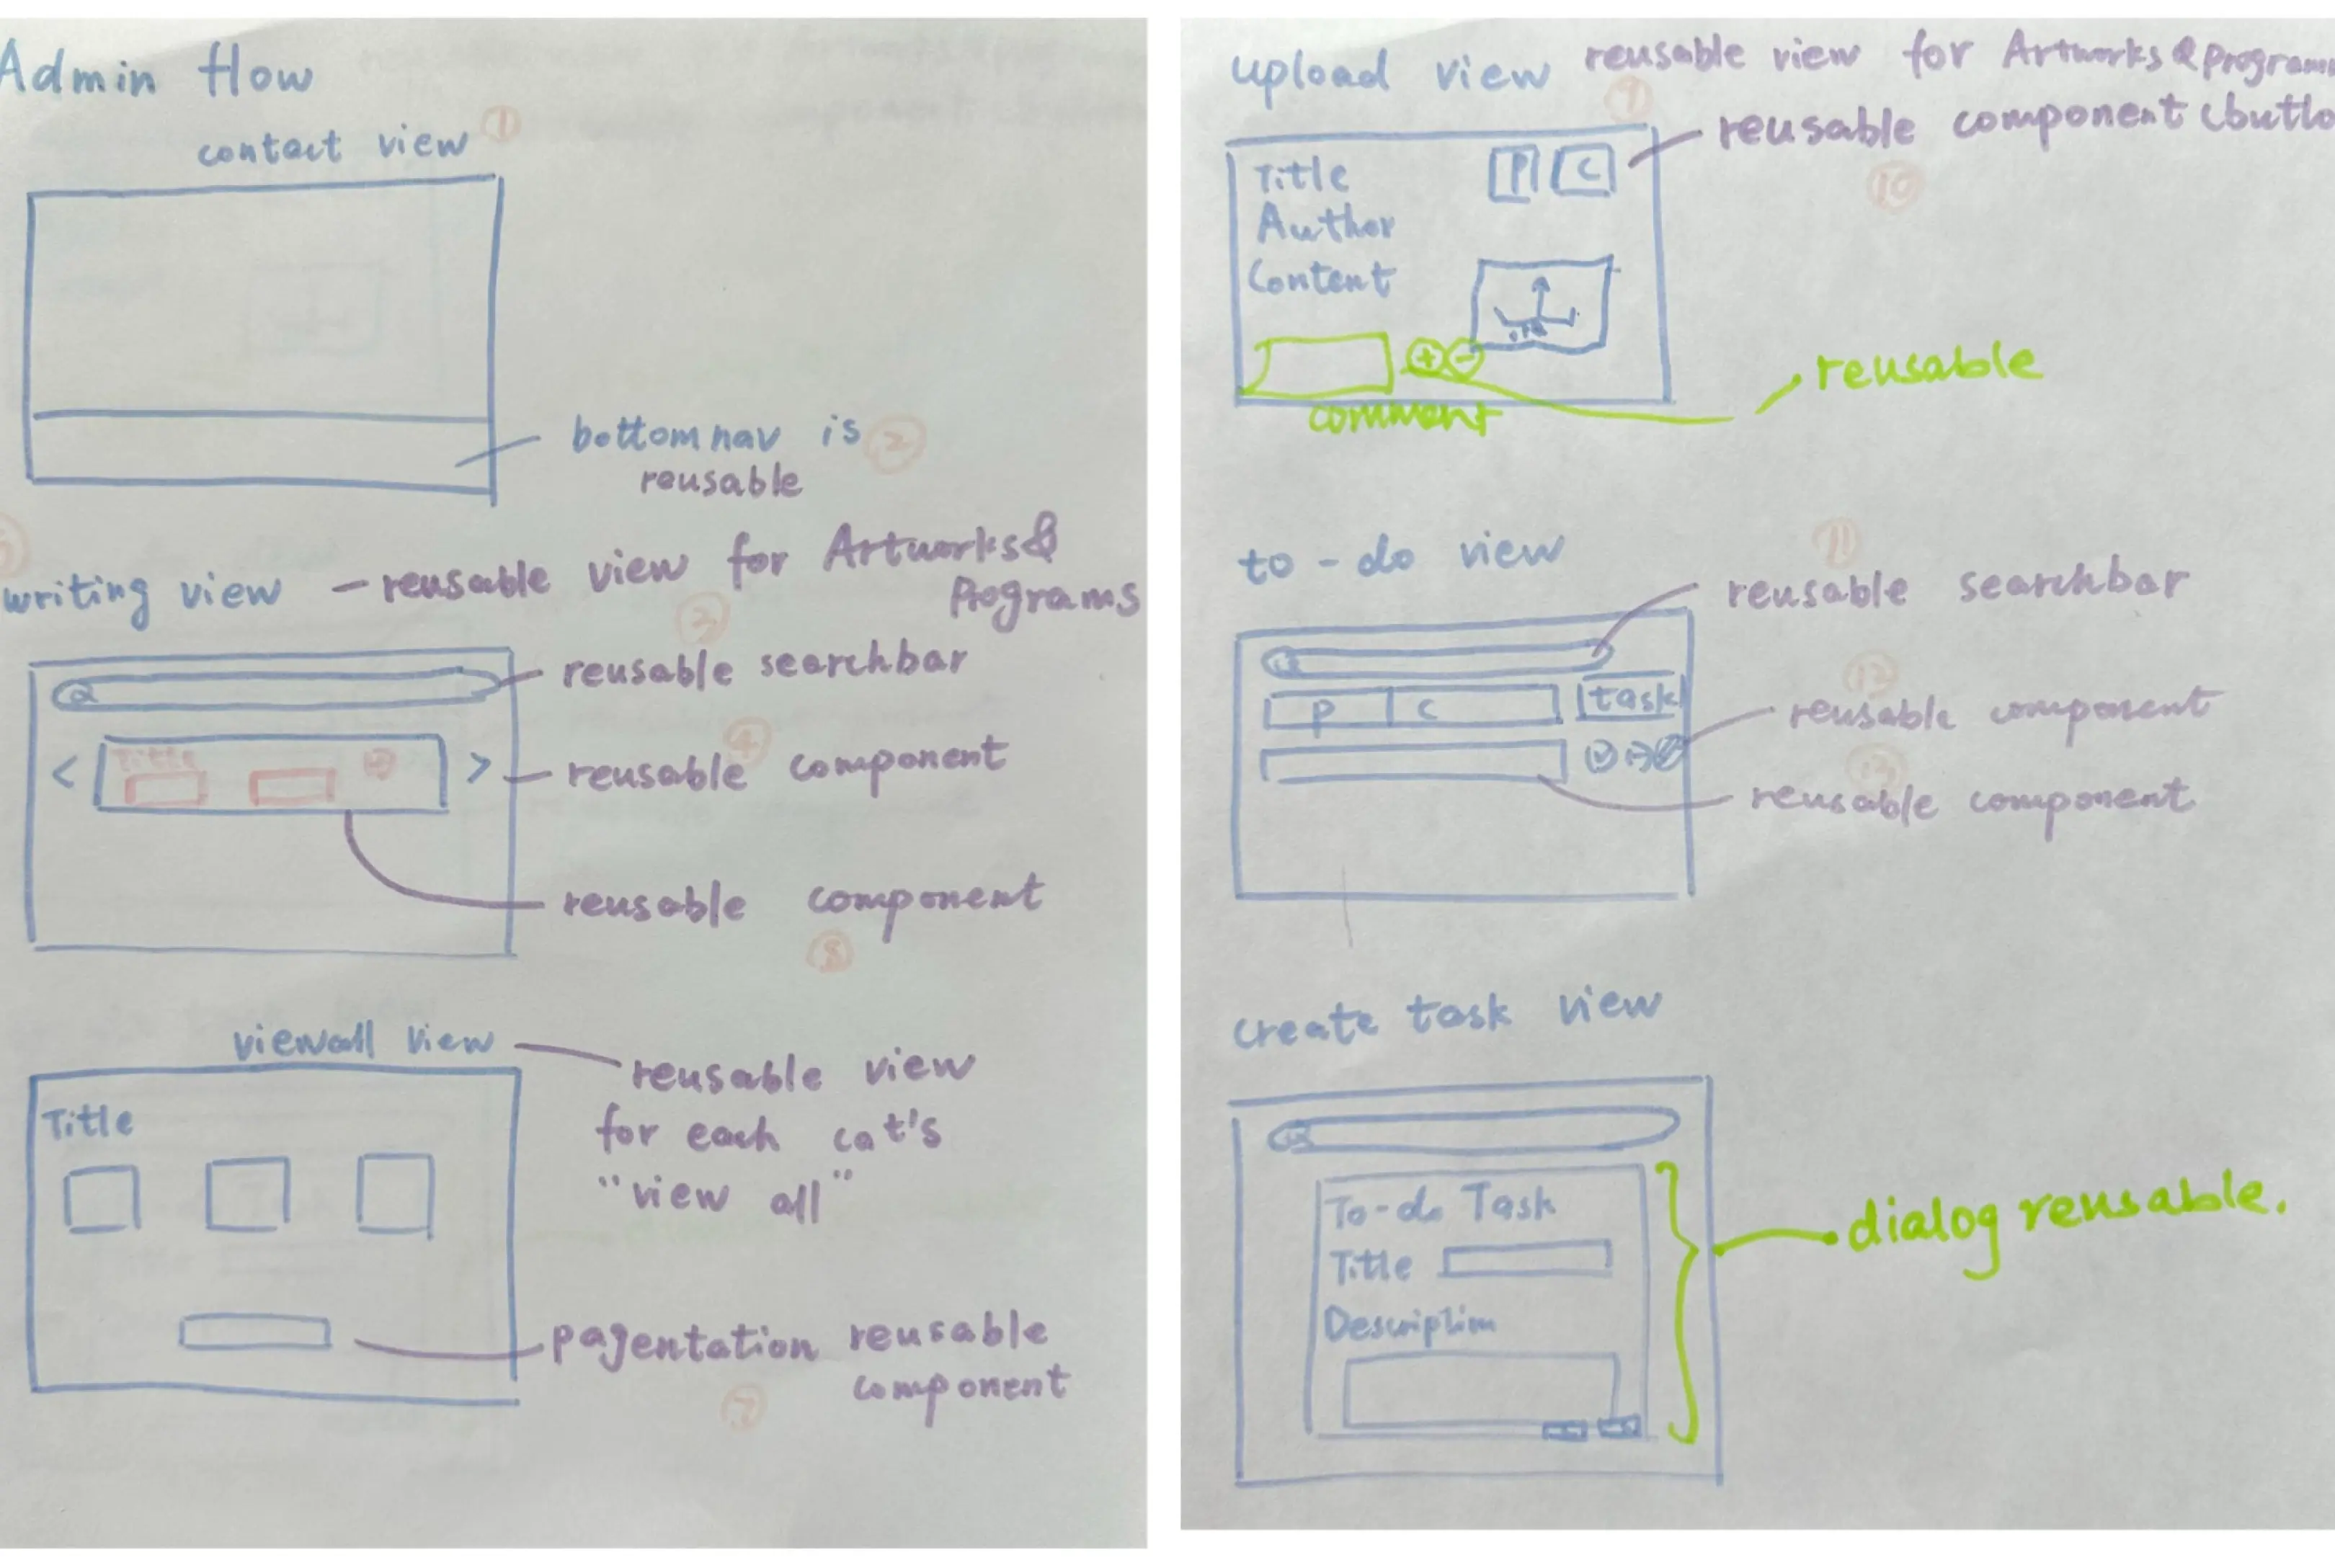 Admin flow
contact view ①
bottomnav is ②
reusable
writing view - reusable view for Artworks &
Programs
③
reusable searchbar
④
< Title > reusable component
reusable component
⑧
viewall view
reusable view
for each cat's
"view all"
Title
pagentation reusable
component
⑦
upload view reusable view for Artworks &
⑨
reusable component
⑩
Title P C
Author
Content
+ -
reusable
comment
to-do view
⑪
reusable searchbar
P C task
⑫
reusable component
⑬
reusable component
create task view
To-do Task
Title
Description
dialog reusable.